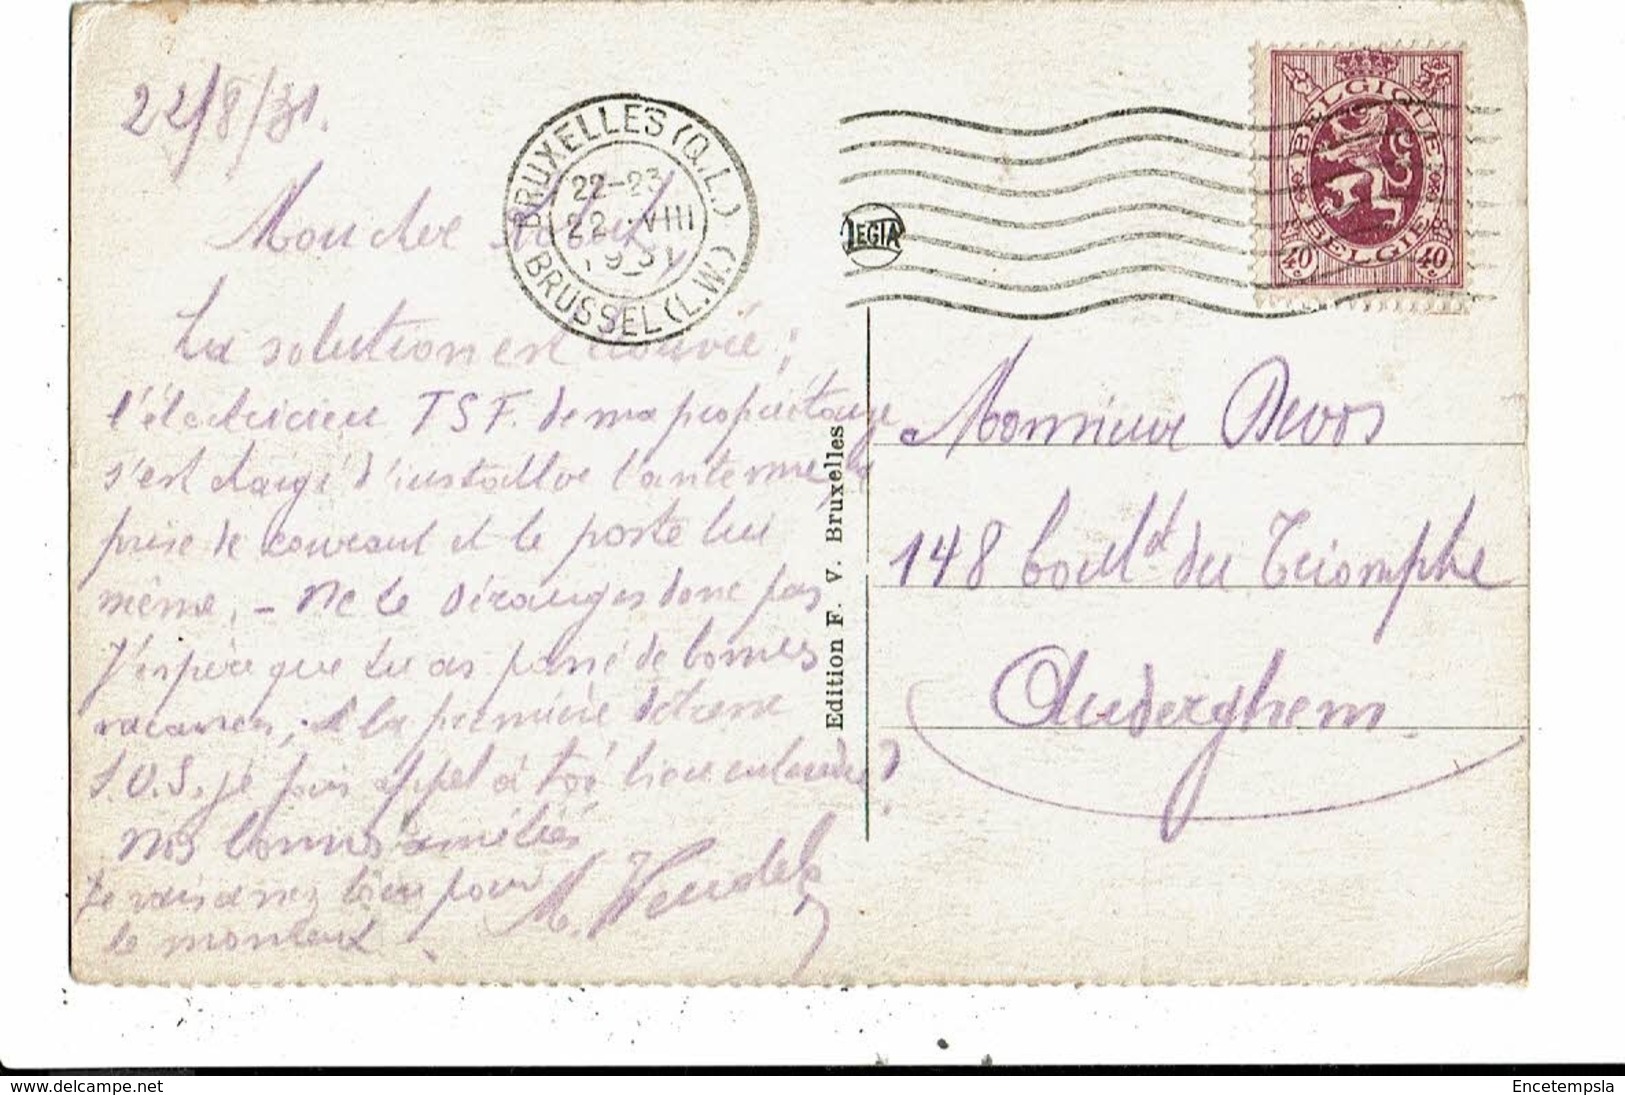 22/8/31.
BRUXELLES (Q.L.)
22-23
22 VIII
1931
BRUSSEL (L.W.)
BELGIQUE
BELGIE
40 c
40 c
LEGIA
Mon cher
La solution est trouvée ;
l'électricien T S F. de ma propriétaire
s'est chargé d'installer l'antenne, la
prise de courant et le poste lui
même, - Ne te déranges donc pas
J'espère que tu as passé de bonnes
vacances, à la première détresse
S.O.S. je fais appel à toi bien entendu
Nos bonnes amitiés
Je vais assez bien pour
le moment.
Edition F. V. Bruxelles
Monsieur Devos
148 boulᵈ du Triomphe
Auderghem
www.delcampe.net
Encetempsla